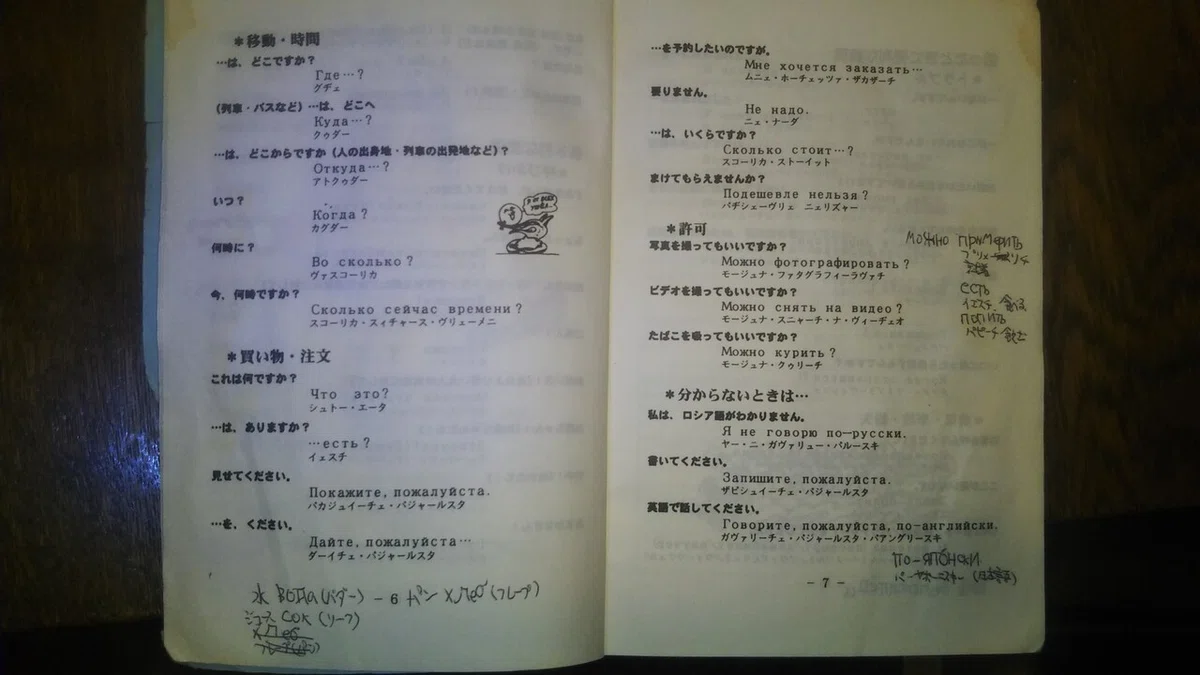 ＊移動・時間
…は、どこですか？
Где…？
グヂェ
(列車・バスなど) …は、どこへ
Куда…？
クゥダー
…は、どこからですか（人の出身地・列車の出発地など）？
Откуда…？
アトクゥダー
いつ？
Когда？
カグダー
何時に？
Во сколько？
ヴァスコーリカ
今、何時ですか？
Сколько сейчас времени？
スコーリカ・スィチャース・ヴリェーメニ
＊買い物・注文
これは何ですか？
Что это?
シュトー・エータ
…は、ありますか？
…есть？
イェスチ
見せてください。
Покажите, пожалуйста.
パカジュイーチェ・パジャールスタ
…を、ください。
Дайте, пожалуйста…
ダーイチェ・パジャールスタ
水 вода (バダー) – 6 パン хлеб (フレープ)
ジュース сок (
хлеб
…を予約したいのですが。
Мне хочется заказать…
ムニェ・ホーチェッツァ・ザカザーチ
要りません。
Не надо.
ニェ・ナーダ
…は、いくらですか？
Сколько стоит…？
スコーリカ・ストーイット
まけてもらえませんか？
Подешевле нельзя？
パヂシェーヴリェ　ニェリズャー
＊許可
写真を撮ってもいいですか？
Можно фотографировать？
モージュナ・ファタグラフィーラヴァチ
ビデオを撮ってもいいですか？
Можно снять на видео？
モージュナ・スニャーチ・ナ・ヴィーヂェオ
たばこを吸ってもいいですか？
Можно курить？
モージュナ・クゥリーチ
можно примерить
есть
イエスチ 食べる
попить
パピーチ 飲む
＊分からないときは…
私は、ロシア語がわかりません。
Я не говорю по—русски.
ヤー・ニ・ガヴァリュー・パルースキ
書いてください。
Запишите, пожалуйста.
ザピシュイーチェ・パジャールスタ
英語で話してください。
Говорите, пожалуйста, по-английски.
ガヴァリーチェ・パジャールスタ・パアングリースキ
по-японски
(日本語)
－7－